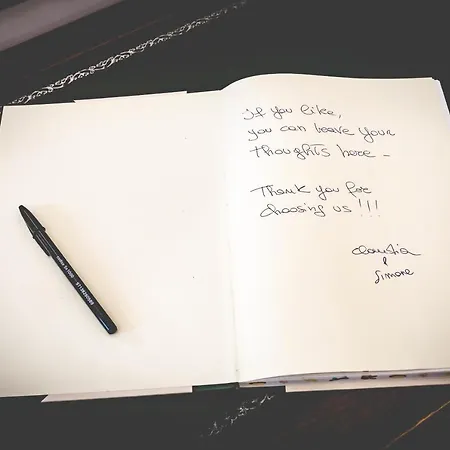 If you like,
you can leave your
thoughts here -
Thank you for
choosing us!!!
Claudia
&
Simone